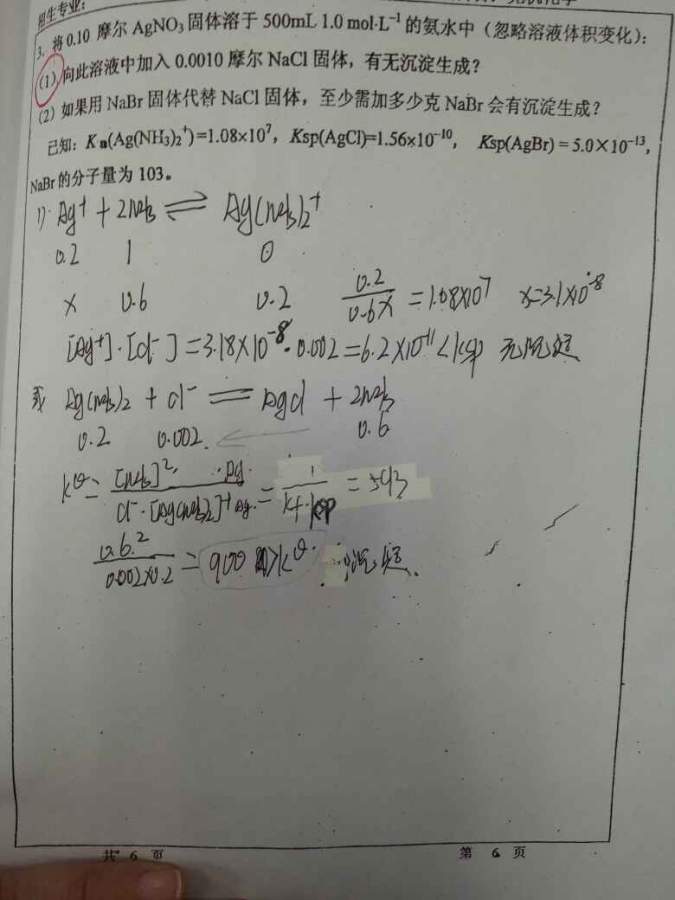 招生专业:
3. 将0.10 摩尔 AgNO₃ 固体溶于 500mL 1.0 mol·L⁻¹ 的氨水中(忽略溶液体积变化):
(1) 向此溶液中加入 0.0010 摩尔 NaCl 固体,有无沉淀生成?
(2) 如果用 NaBr 固体代替 NaCl 固体,至少需加多少克 NaBr 会有沉淀生成?
已知: K稳(Ag(NH₃)₂⁺)=1.08×10⁷, Ksp(AgCl)=1.56×10⁻¹⁰, Ksp(AgBr) = 5.0×10⁻¹³,
NaBr 的分子量为 103。
1). Ag⁺ + 2NH₃ ⇌ Ag(NH₃)₂⁺
0.2 1 0
x 0.6 0.2 0.2/0.6x = 1.08×10⁷ x=3.1×10⁻⁸
[Ag⁺]·[Cl⁻] = 3.18×10⁻⁸·0.002 = 6.2×10⁻¹¹ < ksp 无沉淀
或 Ag(NH₃)₂ + Cl⁻ = AgCl + 2NH₃
0.2 0.002 0.6
K^θ = [NH₃]² Ag / Cl⁻·[Ag(NH₃)₂]⁺ Ag = 1/Kf·ksp = 593
0.6²/0.002×0.2 = 900 > K^θ 沉淀.
共 6 页 第 6 页